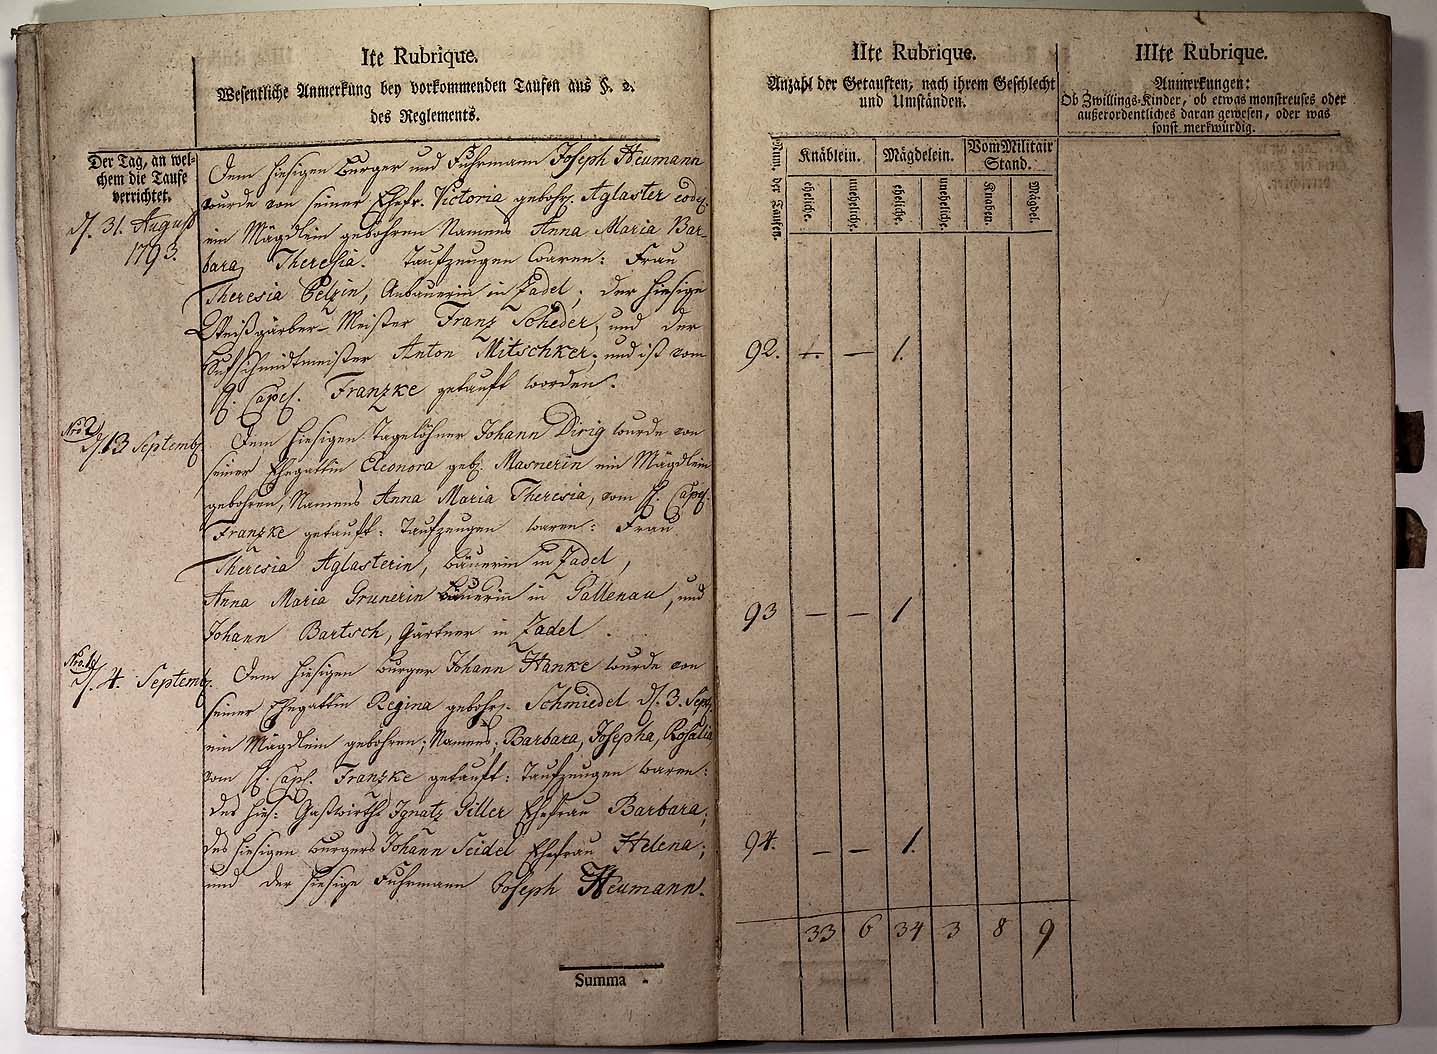 Ite Rubrique.
Wesentliche Anmerkung bey vorkommenden Taufen aus §. 2.
des Reglements.
Der Tag, an wel-
chem die Taufe
verrichtet.
d. 31. August
1793.
Dem hiesigen Burger und Fuhrmann Joseph Heumann
wurde von seiner Ehefr. Victoria gebohr. Aglaster
ein Mägdlein gebohren Namens Anna Maria Bar-
bara Theresia. Taufzeugen waren: Frau
Theresia Pelzin, Anbauerin in Zadel; der hiesige
Weißgärber-Meister Franz Scheder, und der
Hufschmidtmeister Anton Mitschker, und ist vom
H. Capl. Franzke getauft worden.
Nro 2
d. 13 Septemb.
Dem hiesigen Tagelöhner Johann Dirig wurde von
seiner Ehegattin Eleonora geb. Masnerin ein Mägdlein
gebohren, Namens Anna Maria Theresia, vom H. Capl.
Franzke getauft: Taufzeugen waren: Frau
Theresia Aglasterin, bäuerin in Zadel,
Anna Maria Grunerin bäuerin in Gallenau, und
Johann Bartsch, Gärtner in Zadel.
d. 4. Septemb.
Dem hiesigen burger Johann Hanke wurde von
seiner Ehegattin Regina gebohr. Schmiedel d. 3. Sept.
ein Mägdlein gebohren; Namens; Barbara, Josepha, Rosalia
vom H. Capl. Franzke getauft: Taufzeugen waren:
des hies: Gastwirths Ignatz Giller Ehefrau Barbara;
des hiesigen burgers Johann Seidel Ehefrau Helena;
und der hiesige Fuhrmann Joseph Heumann.
Summa
IIte Rubrique.
Anzahl der Getauften, nach ihrem Geschlecht
und Umständen.
Num. der Taufen.
Knäblein.
Mägdelein.
Vom Militair
Stand.
eheliche.
uneheliche.
eheliche.
uneheliche.
Knaben.
Mägdel.
92. — — 1.
93 — — 1
94. — — 1.
33 6 34 3 8 9
IIIte Rubrique.
Anmerkungen:
Ob Zwillings-Kinder, ob etwas monstreuses oder
außerordentliches daran gewesen, oder was
sonst merkwürdig.